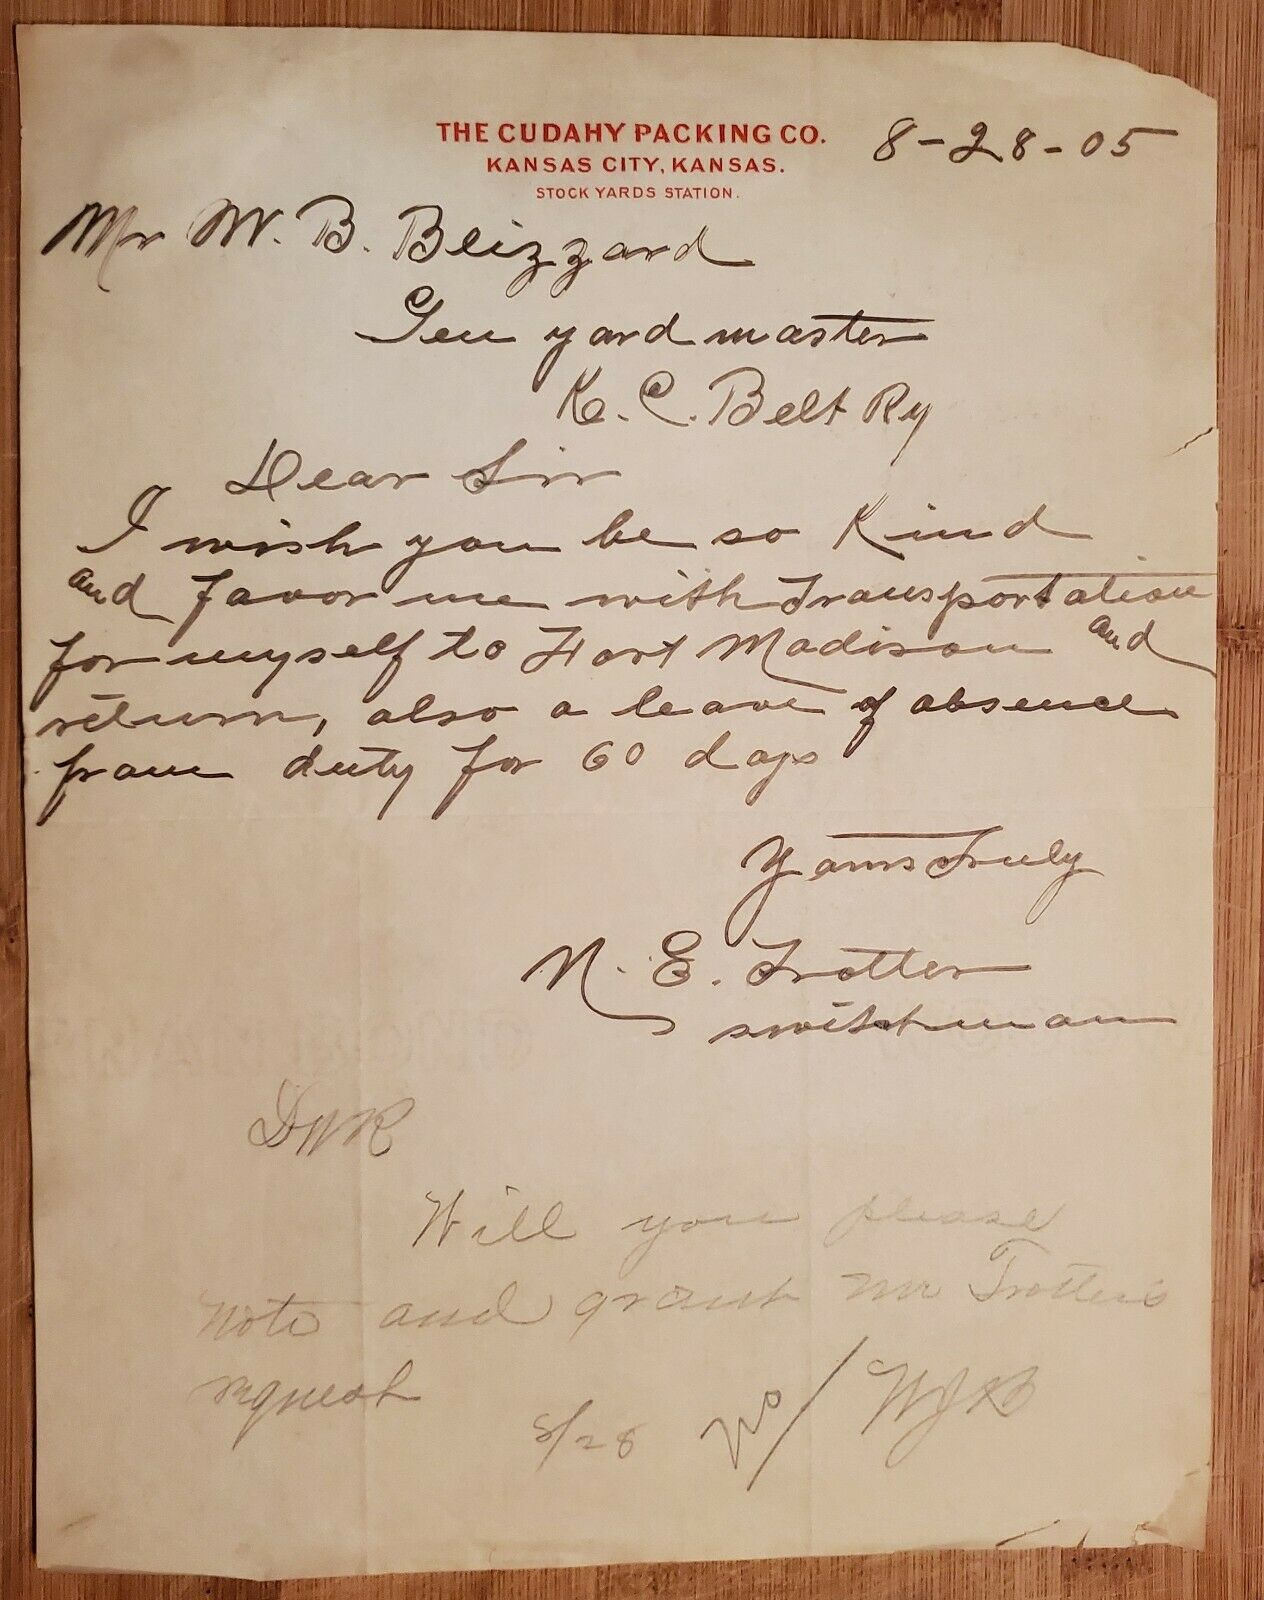 THE CUDAHY PACKING CO.
KANSAS CITY, KANSAS.
STOCK YARDS STATION.
8-28-05
Mr W. B. Blizzard
Gen yard master
K. C. Belt Ry
Dear Sir
I wish you be so Kind
and favor me with Transportation
for myself to Fort Madison and
return, also a leave of absence
from duty for 60 days
Yours Truly
N. E. Trotter
switchman
DWR
Will you please
note and grant Mr Trotters
request
8/28 No/ WJB